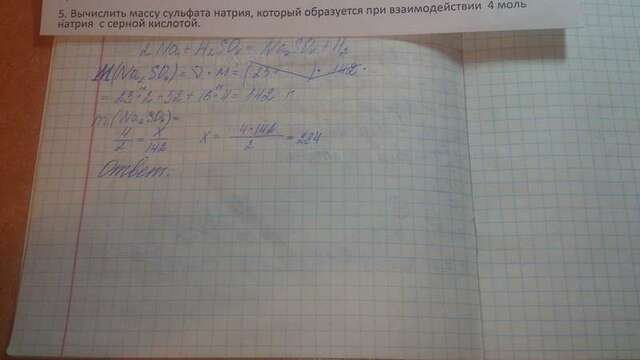 5. Вычислить массу сульфата натрия, который образуется при взаимодействии 4 моль
натрия с серной кислотой.
2 Na + H2SO4 = Na2SO4 + H2
M(Na2SO4) = υ · M = (23 + ) · 142
= 23·2 + 32 + 16·4 = 142 г
m(Na2SO4) =
4/2 = x/142 x = 4·142/2 = 284
Ответ.